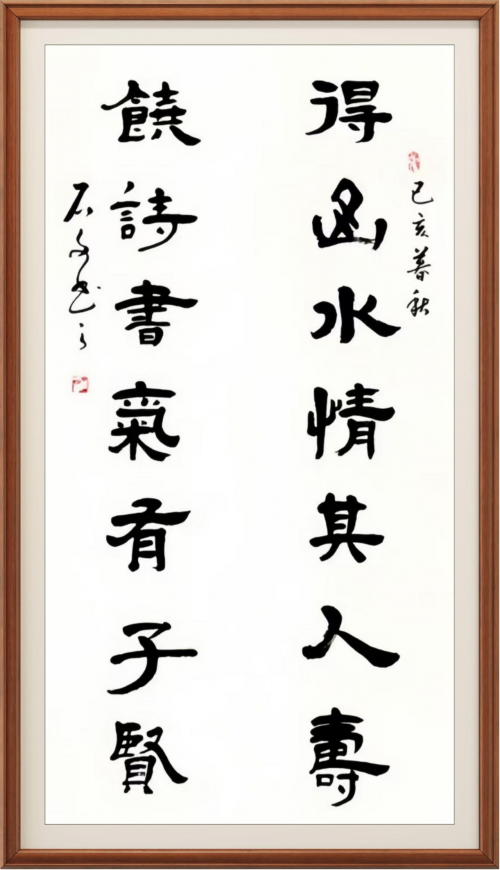 己亥暮秋
得山水情其人壽
饒詩書氣有子賢
石书之